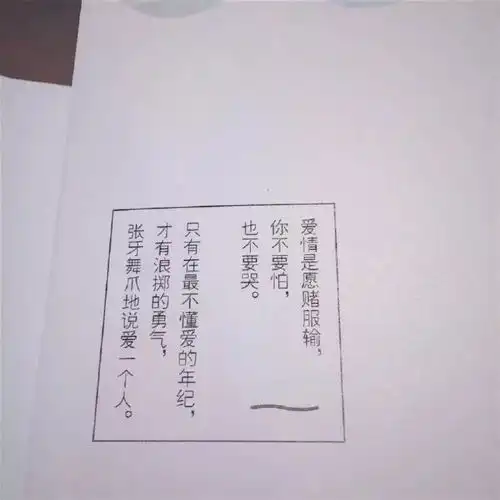 爱情是愿赌服输，
你不要怕，
也不要哭。
只有在最不懂爱的年纪，
才有浪掷的勇气，
张牙舞爪地说爱一个人。